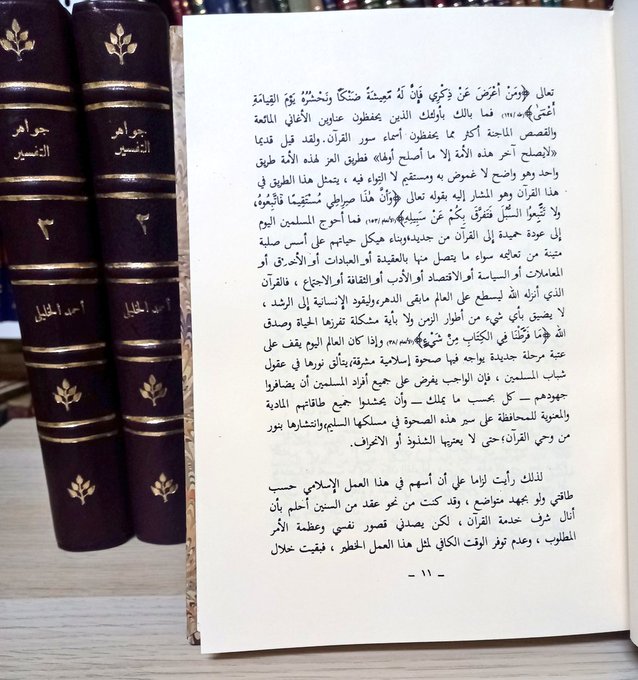 جواهر
التفسير
٣
أحمد الخليلي
جواهر
التفسير
٢
أحمد الخليلي
تعالى ﴿ومَنْ أَعْرَضَ عَنْ ذِكْرِي فَإِنَّ لَهُ مَعِيشَةً ضَنْكاً ونَحْشُرُهُ يَوْمَ القِيامَةِ
أَعْمَى﴾(طه/١٢٤) فما بالك بأولئك الذين يحفظون عناوين الأغاني المائعة
والقصص الماجنة أكثر مما يحفظون أسماء سور القرآن. ولقد قيل قديما
«لايصلح آخر هذه الأمة إلا ما أصلح أولها» فطريق العز لهذه الأمة طريق
واحد وهو واضح لا غموض به ومستقيم لا التواء فيه ، يتمثل هذا الطريق في
هذا القرآن وهو المشار إليه بقوله تعالى ﴿وأَنَّ هٰذَا صِراطِي مُسْتَقِيمًا فَاتَّبِعُوهُ،
ولا تَتَّبِعُوا السُّبُلَ فَتَفَرَّقَ بِكُمْ عَنْ سَبِيلِهِ﴾(الأنعام/١٥٣) فما أحوج المسلمين اليوم
إلى عودة حميدة إلى القرآن من جديد،وبناء هيكل حياتهم على أسس صلبة
متينة من تعاليمه سواء ما يتصل منها بالعقيدة أو العبادات أو الأخلاق أو
المعاملات أو السياسة أو الاقتصاد أو الأدب أو الثقافة أو الاجتماع ، فالقرآن
الذي أنزله الله ليسطع على العالم مابقى الدهر،وليقود الإنسانية إلى الرشد ،
لا يضيق بأي شيء من أطوار الزمن ولا بأية مشكلة تفرزها الحياة وصدق
الله ﴿مَا فَرَّطْنَا فِي الكِتَابِ مِنْ شَيْءٍ﴾(الأنعام/٣٨) وإذا كان العالم اليوم يقف على
عتبة مرحلة جديدة يواجه فيها صحوة إسلامية مشرقة،يتألق نورها في عقول
شباب المسلمين ، فإن الواجب يفرض على جميع أفراد المسلمين أن يضافروا
جهودهم — كل بحسب ما يملك — وأن يحشدوا جميع طاقاتهم المادية
والمعنوية للمحافظة على سير هذه الصحوة في مسلكها السليم،وانتشارها بنور
من وحي القرآن؛حتى لا يعتريها الشذوذ أو الانحراف.
لذلك رأيت لزاما علي أن أسهم في هذا العمل الإسلامي حسب
طاقتي ولو بجهد متواضع ، وقد كنت من نحو عقد من السنين أحلم بأن
أنال شرف خدمة القرآن ، لكن يصدني قصور نفسي وعظمة الأمر
المطلوب ، وعدم توفر الوقت الكافي لمثل هذا العمل الخطير ، فبقيت خلال
— ١١ —